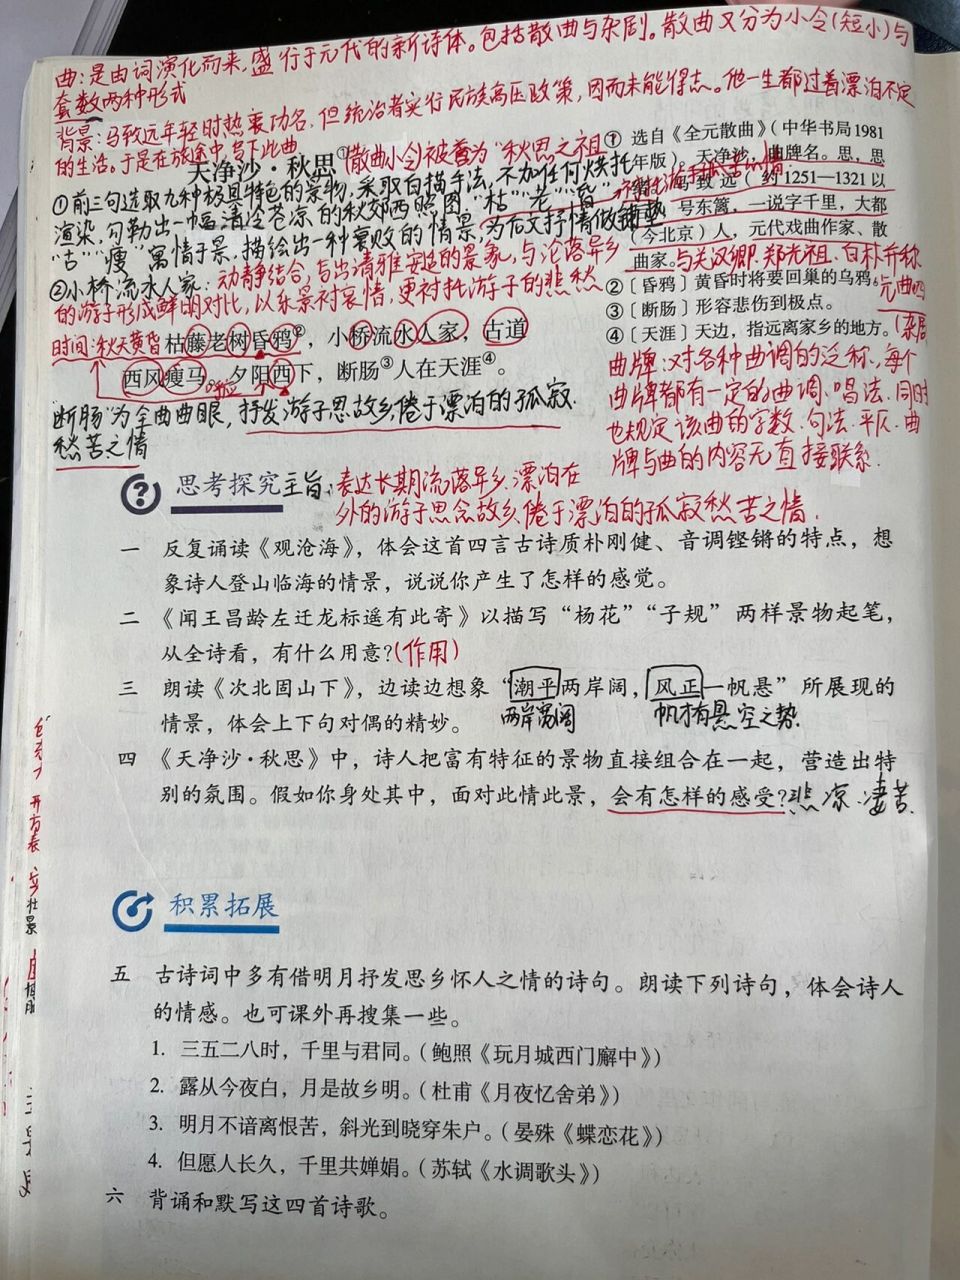 曲：是由词演化而来，盛行于元代的新诗体。包括散曲与杂剧。散曲又分为小令(短小)与
套数两种形式
背景：马致远年轻时热衷功名，但统治者实行民族高压政策，因而未能得志。他一生都过着漂泊不定
的生活。于是在旅途中写下此曲
天净沙·秋思①
散曲小令被誉为“秋思之祖
①前三句选取九种极具特色的景物，采取白描手法，不加任何烘托
渲染，勾勒出一幅清冷苍凉的秋郊夕照图，“枯”“老”“昏”
“古”“瘦”寓情于景，描绘出一种衰败的情景，为后文抒情做铺垫
②小桥流水人家：动静结合，写出清雅安适的景象，与沦落异乡
的游子形成鲜明对比，以乐景衬哀情，更衬托游子的悲愁
时间：秋天黄昏
枯藤老树昏鸦②，小桥流水人家，古道
西风瘦马。夕阳西下，断肠③人在天涯④。
“断肠”为全曲曲眼，抒发游子思故乡，倦于漂泊的孤寂
愁苦之情
① 选自《全元散曲》（中华书局1981
年版）。天净沙，曲牌名。思，思
马致远（约1251—1321以
号东篱，一说字千里，大都
（今北京）人，元代戏曲作家、散
曲家。与关汉卿、郑光祖、白朴并称
② 〔昏鸦〕黄昏时将要回巢的乌鸦。元曲四
③ 〔断肠〕形容悲伤到极点。
④ 〔天涯〕天边，指远离家乡的地方。(杂剧
曲牌：对各种曲调的泛称，每个
曲牌都有一定的曲调、唱法，同时
也规定该曲的字数、句法、平仄。曲
牌与曲的内容无直接联系.
思考探究
主旨：表达长期流落异乡，漂泊在
外的游子思念故乡，倦于漂泊的孤寂愁苦之情.
一 反复诵读《观沧海》，体会这首四言古诗质朴刚健、音调铿锵的特点，想
象诗人登山临海的情景，说说你产生了怎样的感觉。
二 《闻王昌龄左迁龙标遥有此寄》以描写“杨花”“子规”两样景物起笔，
从全诗看，有什么用意?(作用)
三 朗读《次北固山下》，边读边想象“潮平两岸阔，风正一帆悬”所展现的
情景，体会上下句对偶的精妙。
两岸宽阔
帆才有悬空之势.
四 《天净沙·秋思》中，诗人把富有特征的景物直接组合在一起，营造出特
别的氛围。假如你身处其中，面对此情此景，会有怎样的感受?悲凉.凄苦.
积累拓展
五 古诗词中多有借明月抒发思乡怀人之情的诗句。朗读下列诗句，体会诗人
的情感。也可课外再搜集一些。
1. 三五二八时，千里与君同。（鲍照《玩月城西门廨中》）
2. 露从今夜白，月是故乡明。（杜甫《月夜忆舍弟》）
3. 明月不谙离恨苦，斜光到晓穿朱户。（晏殊《蝶恋花》）
4. 但愿人长久，千里共婵娟。（苏轼《水调歌头》）
六 背诵和默写这四首诗歌。